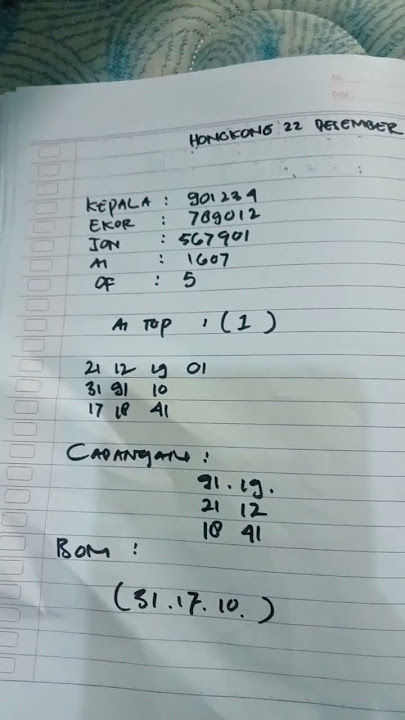 No
Date
HONGKONG 22 DESEMBER
KEPALA : 901234
EKOR : 789012
JON : 567901
AI : 1607
OF : 5
AI TOP : (1)
21 12 19 01
31 91 10
17 18 41
CADANGAN :
91. 19.
21 12
18 41
BOM :
(31.17.10.)